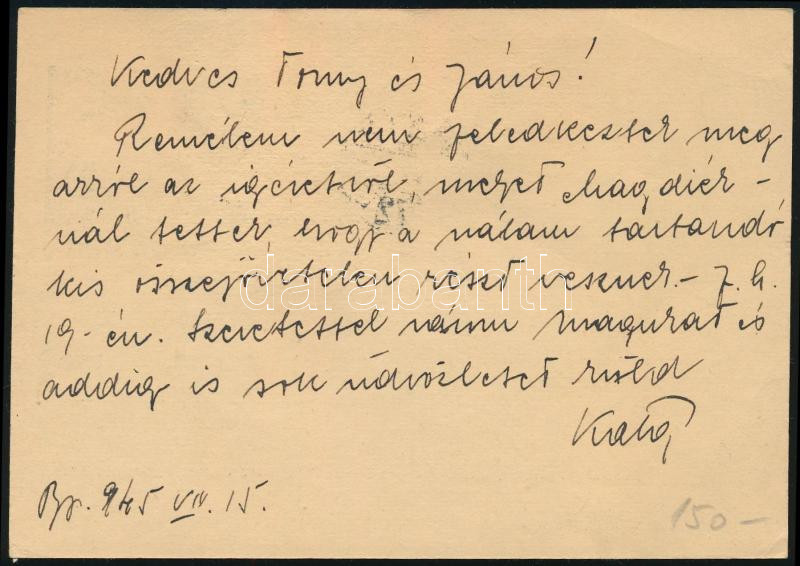 Kedves Tomy és János!
Remélem nem feledkeztek meg
arról az igéretről melyet Magdiék-
nál tettek hogy a nálam tartandó
kis összejövetelen részt vesznek - f. h.
19-én. Szeretettel várom magukat és
addig is sok üdvözletet küld
Kató
Bp. 945 VII. 15.
150-
darabanth